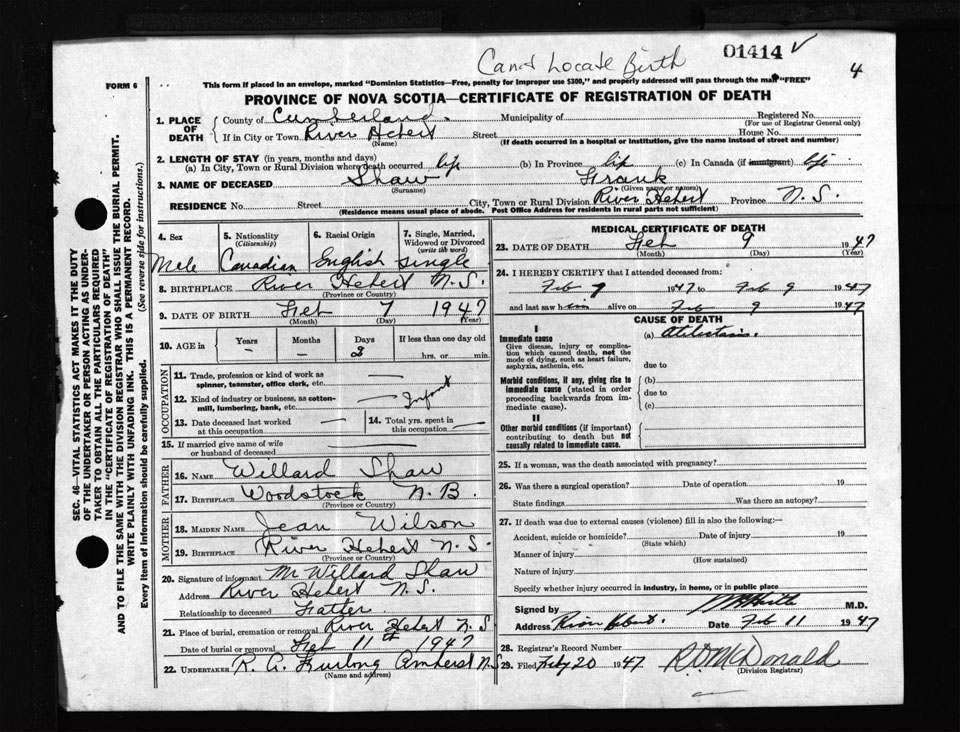 01414 ✓
Can't Locate Birth
4
FORM 6
This form if placed in an envelope, marked "Dominion Statistics—Free, penalty for improper use $300," and properly addressed will pass through the mail "FREE"
PROVINCE OF NOVA SCOTIA—CERTIFICATE OF REGISTRATION OF DEATH
SEC. 46—VITAL STATISTICS ACT MAKES IT THE DUTY
OF THE UNDERTAKER OR PERSON ACTING AS UNDER-
TAKER TO OBTAIN ALL THE PARTICULARS REQUIRED
IN THE "CERTIFICATE OF REGISTRATION OF DEATH"
AND TO FILE THE SAME WITH THE DIVISION REGISTRAR WHO SHALL ISSUE THE BURIAL PERMIT.
WRITE PLAINLY WITH UNFADING INK. THIS IS A PERMANENT RECORD.
Every item of Information should be carefully supplied. (See reverse side for instructions.)
1. PLACE OF DEATH { County of Cumberland. Municipality of Registered No.
(For use of Registrar General only)
If in City or Town River Hebert Street House No.
(Name) (If death occurred in a hospital or institution, give the name instead of street and number)
2. LENGTH OF STAY (in years, months and days)
(a) In City, Town or Rural Division where death occurred life (b) In Province life (c) In Canada (if immigrant) life
3. NAME OF DECEASED Shaw Frank
(Surname) (Given name or names)
RESIDENCE No. Street City, Town or Rural Division River Hebert Province N.S.
(Residence means usual place of abode. Post Office Address for residents in rural parts not sufficient)
4. Sex 5. Nationality (Citizenship) 6. Racial Origin 7. Single, Married, Widowed or Divorced (write the word)
Male Canadian English Single
8. BIRTHPLACE River Hebert N.S.
(Province or Country)
9. DATE OF BIRTH Feb 7 1947
(Month) (Day) (Year)
10. AGE in { Years Months Days If less than one day old
– – 2 hrs. or min.
OCCUPATION
11. Trade, profession or kind of work as
spinner, teamster, office clerk, etc. —
12. Kind of industry or business, as cotton-
mill, lumbering, bank, etc. — Infant
13. Date deceased last worked
at this occupation —
14. Total yrs. spent in
this occupation —
15. If married give name of wife
or husband of deceased —
FATHER
16. NAME Willard Shaw
17. BIRTHPLACE Woodstock N.B.
MOTHER
18. MAIDEN NAME Jean Wilson
19. BIRTHPLACE River Hebert N.S.
(Province or Country)
20. Signature of informant Mr Willard Shaw
Address River Hebert N.S.
Relationship to deceased Father
21. Place of burial, cremation or removal River Hebert N.S
Date of burial or removal Feb 11th 1947
22. UNDERTAKER R. A. Furlong Amherst N.S
(Name and address)
MEDICAL CERTIFICATE OF DEATH
23. DATE OF DEATH Feb 9 1947
(Month) (Day) (Year)
24. I HEREBY CERTIFY that I attended deceased from:
Feb 7 1947 to Feb 9 1947
and last saw him alive on Feb 9 1947
CAUSE OF DEATH
I
Immediate cause (a) Atilectasis.
Give disease, injury or complica-
tion which caused death, not the
mode of dying, such as heart failure,
asphyxia, asthenia, etc. due to
Morbid conditions, if any, giving rise to
immediate cause (stated in order
proceeding backwards from im-
mediate cause). (b)
due to
(c)
II
Other morbid conditions (if important)
contributing to death but not
causally related to immediate cause.
25. If a woman, was the death associated with pregnancy?
26. Was there a surgical operation? Date of operation 19
State findings Was there an autopsy?
27. If death was due to external causes (violence) fill in also the following:—
Accident, suicide or homicide? Date of injury 19
(State which)
Manner of injury
(How sustained)
Nature of injury
Specify whether injury occurred in industry, in home, or in public place
Signed by M.D.
Address River Hebert. Date Feb 11 1947
28. Registrar's Record Number
29. Filed Feby 20 1947 McDonald
(Division Registrar)